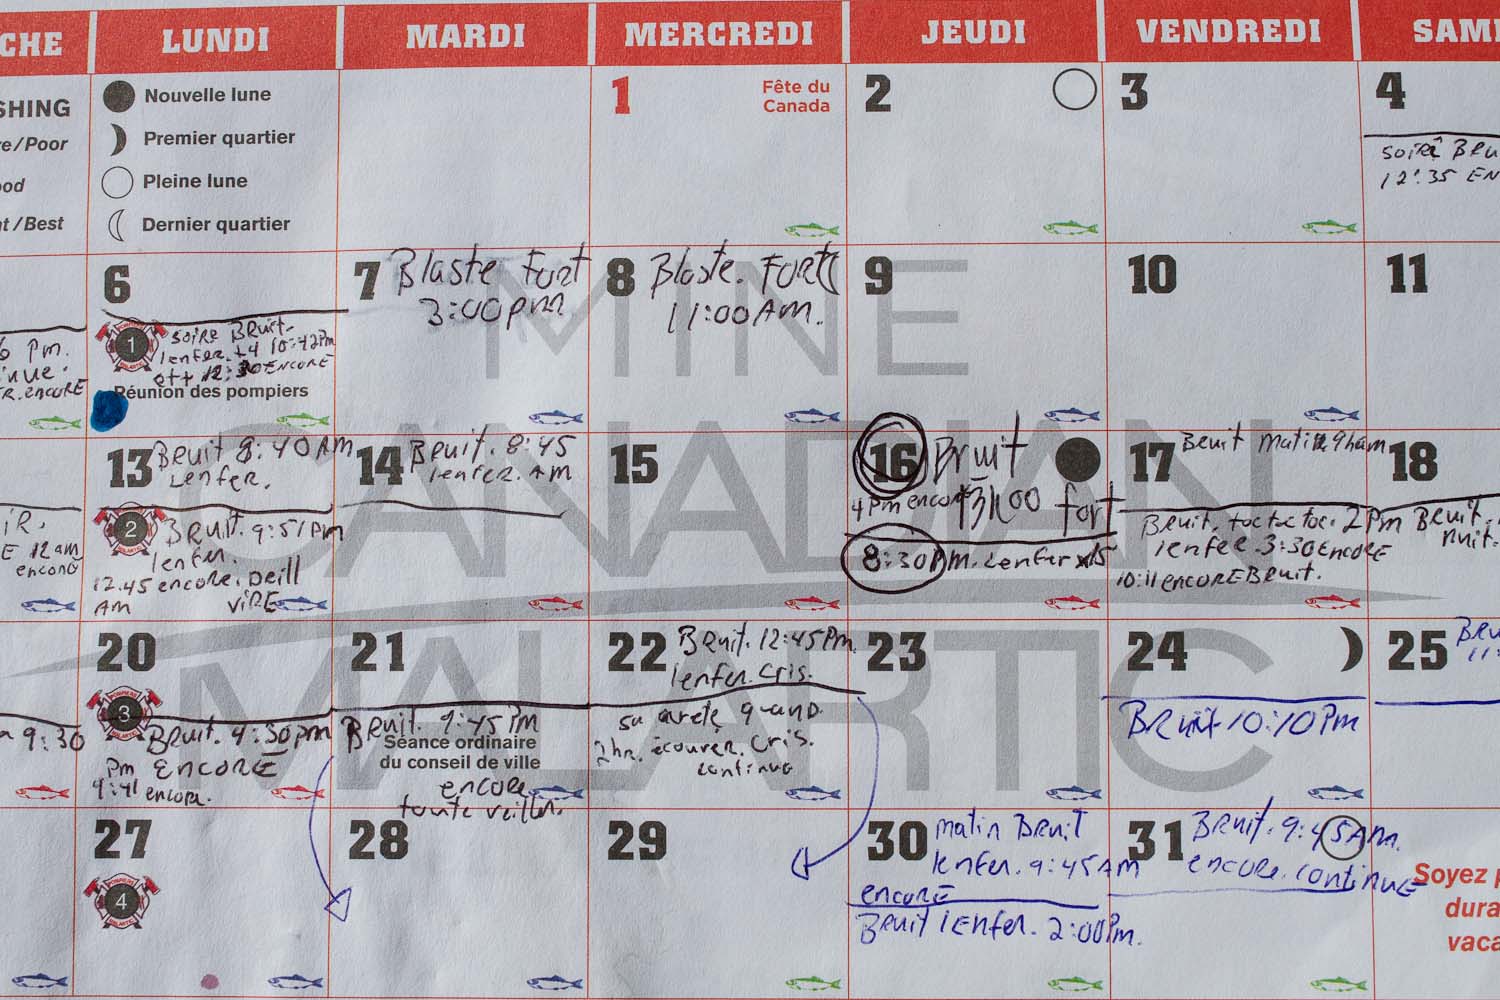 CHE LUNDI MARDI MERCREDI JEUDI VENDREDI SAM
SHING
re/Poor
ood
nt/Best
Nouvelle lune
Premier quartier
Pleine lune
Dernier quartier
1 Fête du
Canada
2
3
4
Soirê Brui
12:35 En
Pm.
inue.
R. encore
6
Soire Bruit.
lenfer. +4 10:42Pm
off 12:30 Encore
1
Réunion des pompiers
7 Blaste Fort
3:00pm
8 Blaste. Fort
11:00 AM.
9
10
11
MINE
CANADIAN
MALARTIC
iR.
E 12am
encore
13 Bruit 8:40 AM
Lenfer.
2
Bruit. 9:51 Pm
lenfer.
12.45 encore. Deill
AM ViRE
14 Bruit. 8:45
lenfer. AM
15
16 Bruit
4 Pm encore 13h00 fort
8:30Pm. Lenfer x15
17 Bruit matin 9ham
Bruit. toctoctoc. 2Pm
lenfer. 3:30 Encore
10:11 encore Bruit.
18
Bruit.
nuit.
9:30
20
3
Bruit. 4:30pm
Pm Encore
9:41 encore.
21
Bruit. 9:45 Pm
Séance ordinaire
du conseil de ville
encore
toute veiller.
22 Bruit. 12:45Pm.
lenfer. Cris.
sa arete 9-and.
2hr. écouver. Cris.
continuo
23
24
Bruit 10:10Pm
25 Bru
11:
27
4
28
29
30 matin Bruit
lenfer. 9:45AM
encore
Bruit lenfer. 2:00Pm.
31 Bruit. 9:45Am.
encore. continue
Soyez p
dura
vaca